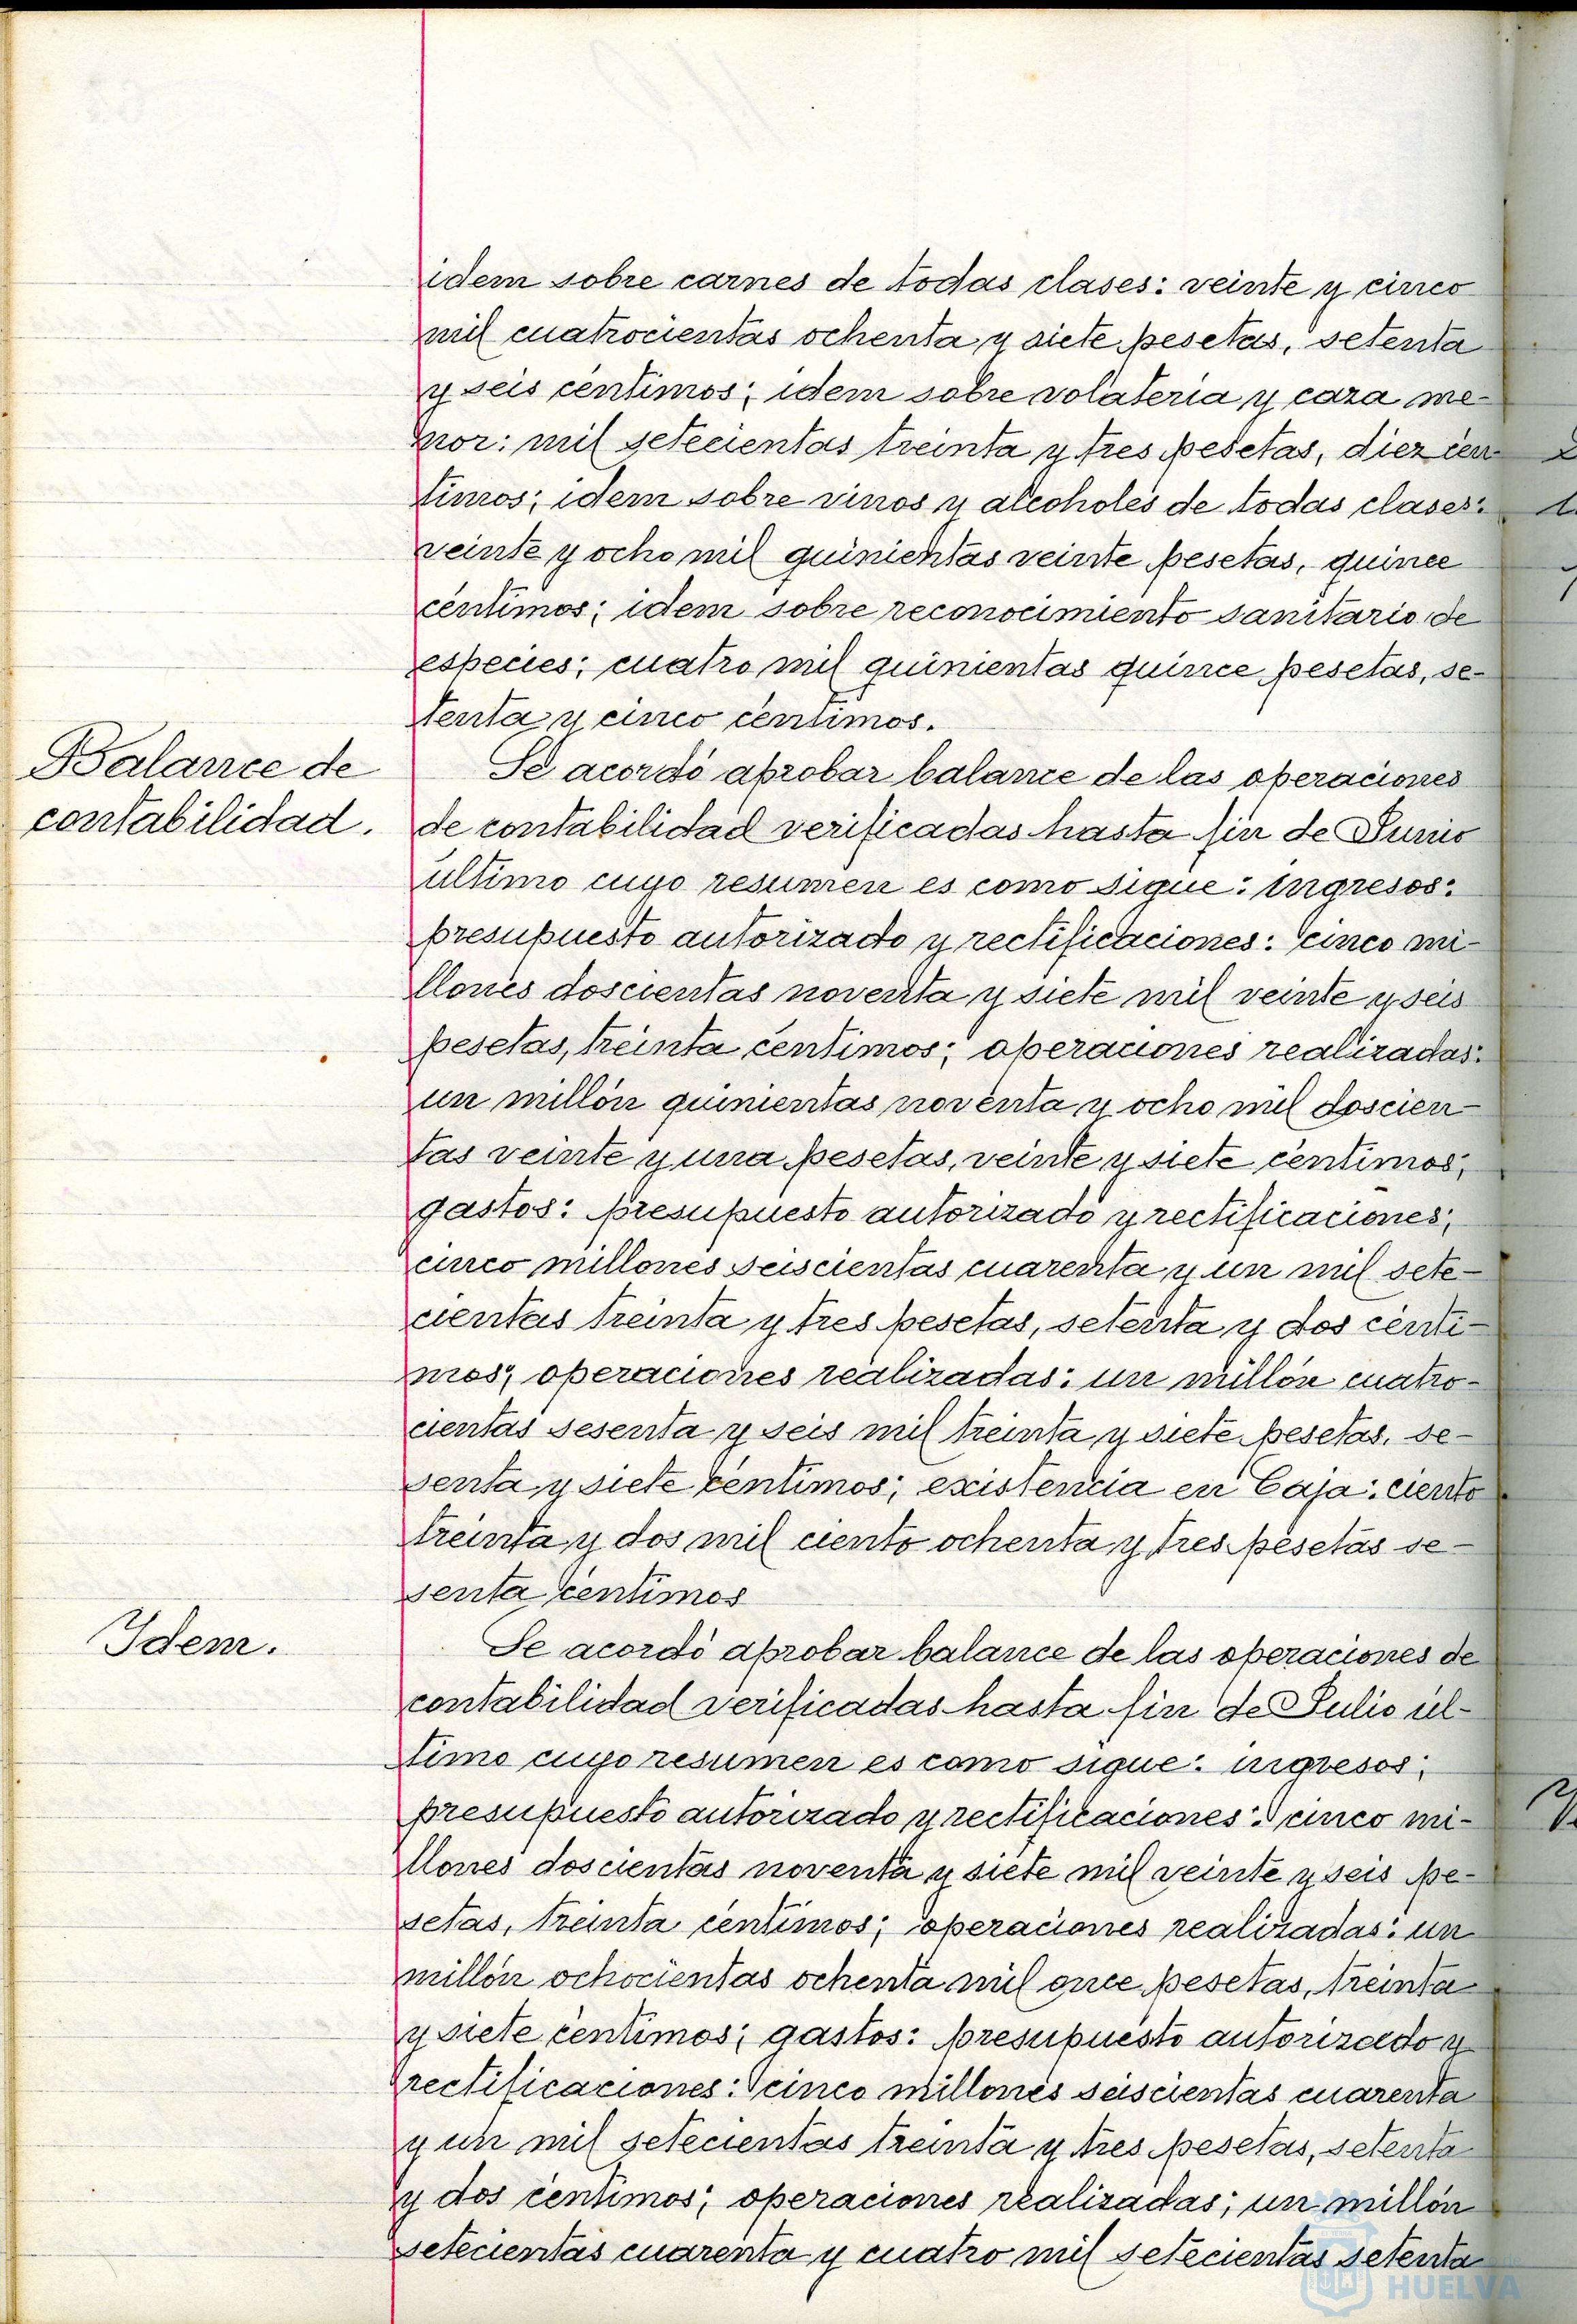 idem sobre carnes de todas clases: veinte y cinco
mil cuatrocientas ochenta y siete pesetas, setenta
y seis centimos; idem sobre volateria y caza me-
nor: mil setecientas treinta y tres pesetas, diez cen
timos; idem sobre vinos y alcoholes de todas clases:
veinte y ocho mil quinientas veinte pesetas, quince
centimos; idem sobre reconocimiento sanitario de
especies; cuatro mil quinientas quince pesetas, se-
tenta y cinco centimos.
Balance de
contabilidad.
Se acordó aprobar balance de las operaciones
de contabilidad verificadas hasta fin de Junio
ultimo cuyo resumen es como sigue: ingresos:
presupuesto autorizado y rectificaciones: cinco mi-
llones doscientas noventa y siete mil veinte y seis
pesetas, treinta centimos; operaciones realizadas:
un millón quinientas noventa y ocho mil doscien-
tas veinte y una pesetas, veinte y siete centimos;
gastos: presupuesto autorizado y rectificaciones;
cinco millones seiscientas cuarenta y un mil sete-
cientas treinta y tres pesetas, setenta y dos centi-
mos; operaciones realizadas: un millón cuatro-
cientas sesenta y seis mil treinta y siete pesetas, se-
senta y siete centimos; existencia en Caja: ciento
treinta y dos mil ciento ochenta y tres pesetas se-
senta centimos
Idem.
Se acordó aprobar balance de las operaciones de
contabilidad verificadas hasta fin de Julio úl-
timo cuyo resumen es como sigue: ingresos;
presupuesto autorizado y rectificaciones: cinco mi-
llones doscientas noventa y siete mil veinte y seis pe-
setas, treinta centimos; operaciones realizadas: un
millón ochocientas ochenta mil once pesetas, treinta
y siete centimos; gastos: presupuesto autorizado y
rectificaciones: cinco millones seiscientas cuarenta
y un mil setecientas treinta y tres pesetas, setenta
y dos centimos; operaciones realizadas; un millón
setecientas cuarenta y cuatro mil setecientas setenta
HUELVA